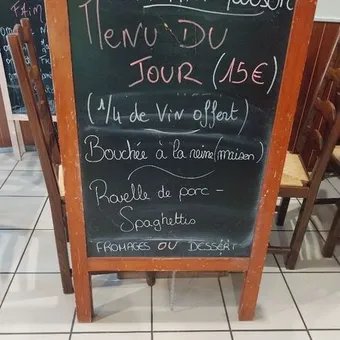 Menu du
Jour (15€)
(1/4 de vin offert)
Bouchée à la reine (maison)
Rouelle de porc -
Spaghettis
FROMAGES OU DESSERT